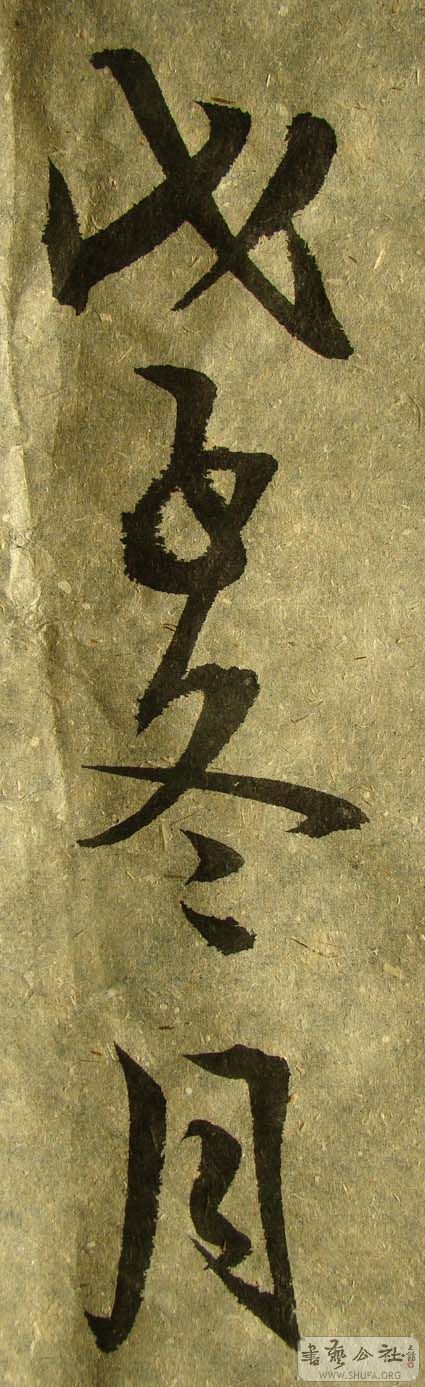 戊子冬月
書藝公社
WWW.SHUFA.ORG